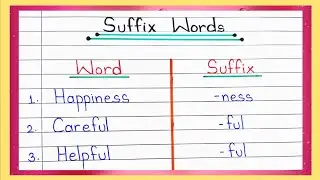 Suffix Words
Word Suffix
1. Happiness -ness
2. Careful -ful
3. Helpful -ful